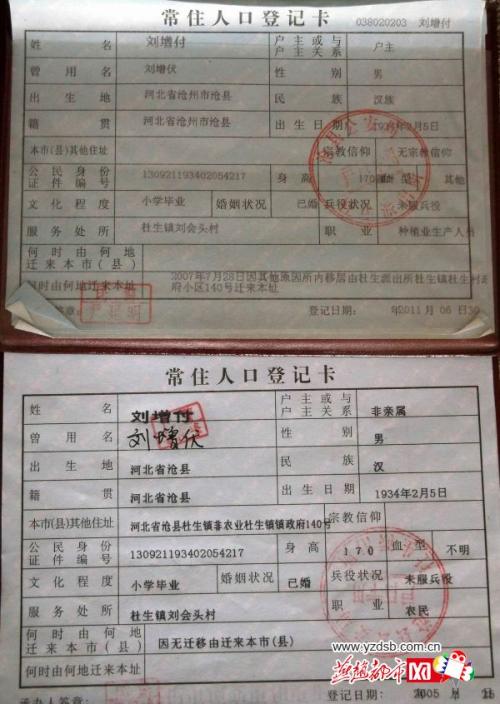 常住人口登记卡
038020203 刘增付
姓 名 刘增付 户主或与户主关系 户主
曾用名 刘增伏 性别 男
出生地 河北省沧州市沧县 民族 汉族
籍贯 河北省沧州市沧县 出生日期 1934年2月5日
本市(县)其他住址 宗教信仰 无宗教信仰
公民身份证件编号 130921193402054217 身高 170 血型 其他
文化程度 小学毕业 婚姻状况 已婚 兵役状况 未服兵役
服务处所 杜生镇刘会头村 职业 种植业生产人员
何时由何地迁来本市(县)
何时由何地迁来本址 2007年7月28日因其他原因所内移居由杜生派出所杜生镇杜生村
府小区140号迁来本址
登记日期: 2011年06月30
常住人口登记卡
姓 名 刘增付 户主或与户主关系 非亲属
曾用名 刘增伏 性别 男
出生地 河北省沧县 民族 汉
籍贯 河北省沧县 出生日期 1934年2月5日
本市(县)其他住址 河北省沧县杜生镇非农业杜生镇镇政府140号 宗教信仰
公民身份证件编号 130921193402054217 身高 170 血型 不明
文化程度 小学毕业 婚姻状况 已婚 兵役状况 未服兵役
服务处所 杜生镇刘会头村 职业 农民
何时由何地迁来本市(县) 因无迁移由迁来本市(县)
何时由何地迁来本址
承办人签章: 登记日期: 2005年 月 日
www.yzdsb.com.cn
燕赵都市网